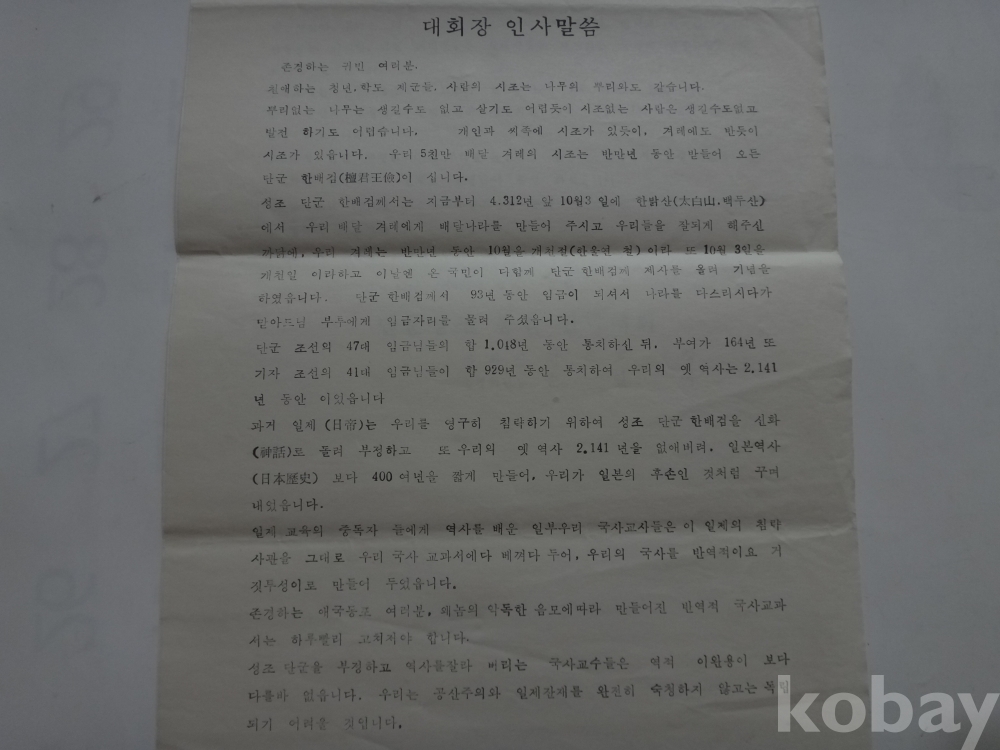 대회장 인사말씀
존경하는 귀빈 여러분.
친애하는 청년.학도 제군들. 사람의 시조는 나무의 뿌리와도 같습니다.
뿌리없는 나무는 생길수도 없고 살기도 어렵듯이 시조없는 사람은 생길수도없고
발전 하기도 어렵습니다. 개인과 씨족에 시조가 있듯이, 겨레에도 반듯이
시조가 있읍니다. 우리 5천만 배달 겨레의 시조는 반만년 동안 만들어 오든
단군 한배검(檀君王儉)이 십니다.
성조 단군 한배검께서는 지금부터 4.312년 앞 10월3일에 한밝산(太白山.백두산)
에서 우리 배달 겨레에게 배달나라를 만들어 주시고 우리들을 잘되게 해주신
까닭에, 우리 겨레는 반만년 동안 10월을 개천절(한울연 철) 이라 또 10월 3일을
개천일 이라하고 이날엔 온 국민이 다함께 단군 한배검께 제사를 올려 기념을
하였읍니다. 단군 한배검께서 93년 동안 임금이 되셔서 나라를 다스리시다가
맏아드님 부루에게 임금자리를 물려 주셨읍니다.
단군 조선의 47대 임금님들의 합 1.048년 동안 통치하신 뒤, 부여가 164년 또
기자 조선의 41대 임금님들이 합 929년 동안 통치하여 우리의 옛 역사는 2.141
년 동안 이었읍니다
과거 일제 (日帝)는 우리를 영구히 침략하기 위하여 성조 단군 한배검을 신화
(神話)로 돌려 부정하고 또 우리의 옛 역사 2.141 년을 없애버려. 일본역사
(日本歷史) 보다 400 여년을 짧게 만들어, 우리가 일본의 후손인 것처럼 꾸며
내었읍니다.
일제 교육의 중독자 들에게 역사를 배운 일부우리 국사교사들은 이 일제의 침략
사관을 그대로 우리 국사 교과서에다 베껴다 두어, 우리의 국사를 반역적이요 거
짓투성이로 만들어 두었읍니다.
존경하는 애국동포 여러분, 왜놈의 악독한 음모에따라 만들어진 반역적 국사교과
서는 하루빨리 고쳐저야 합니다.
성조 단군을 부정하고 역사를잘라 버리는 국사교수들은 역적 이완용이 보다
다를바 없습니다. 우리는 공산주의와 일제잔재를 완전히 숙청하지 않고는 독립
되기 어려울 것입니다.
kobay